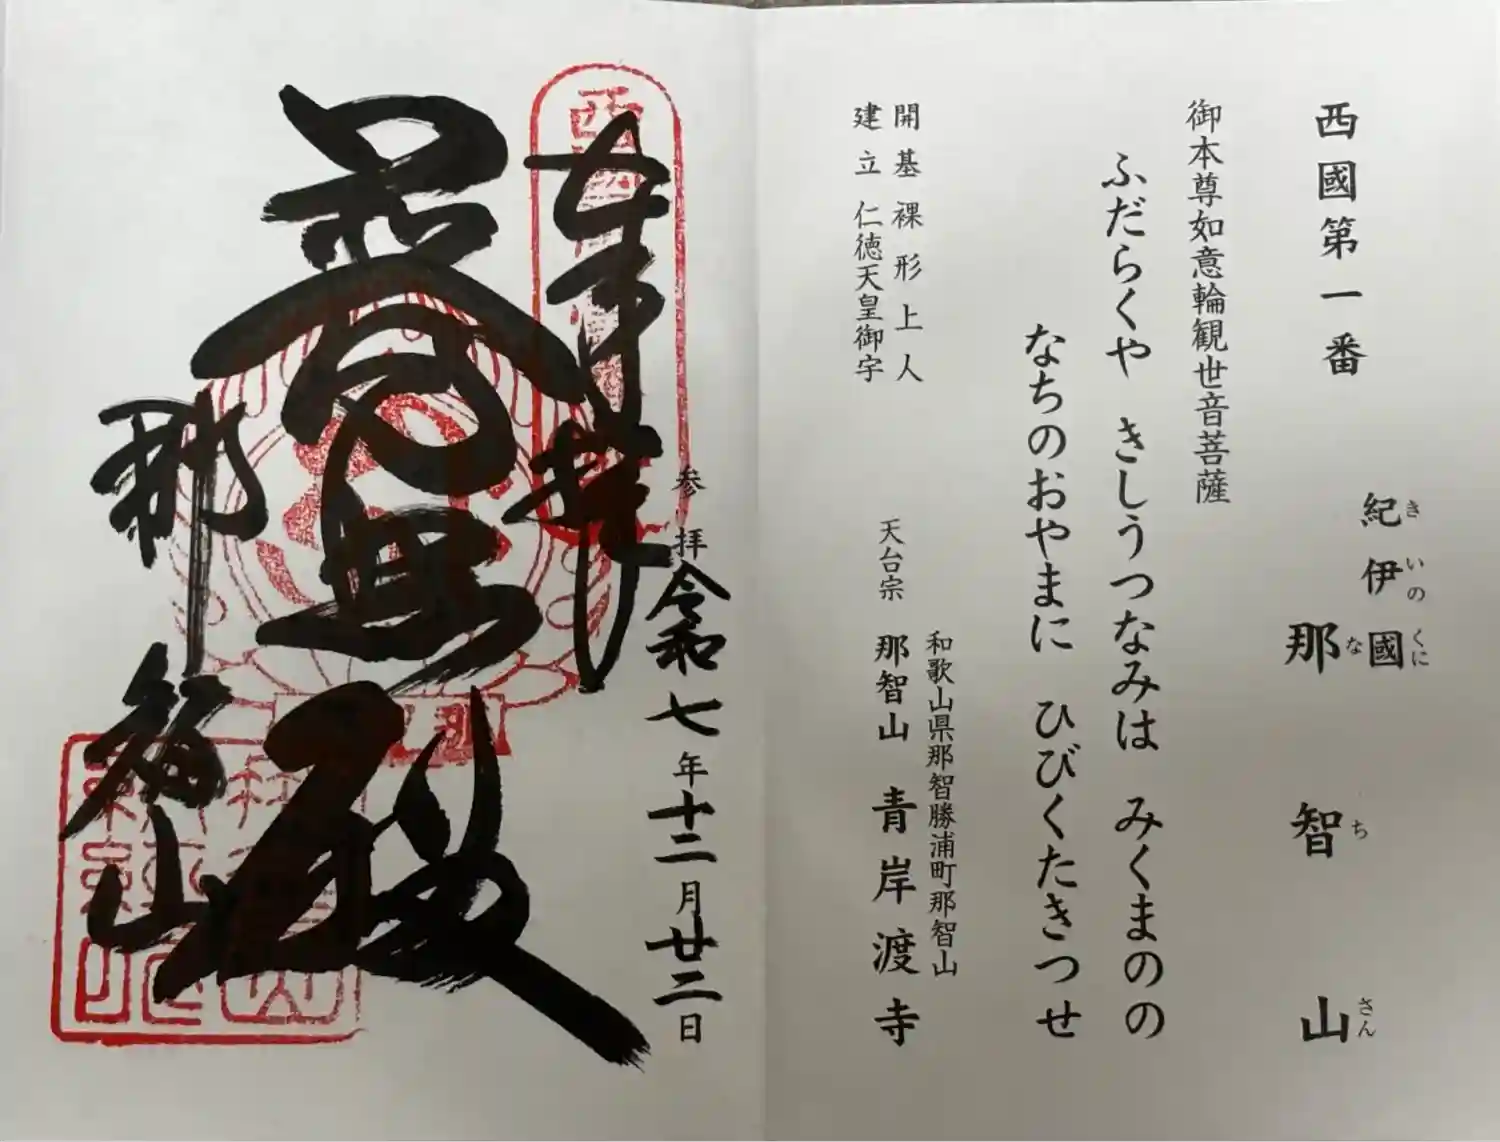 西國第一番
紀伊國
きいのくに
那智山
なちさん
御本尊如意輪観世音菩薩
ふだらくや きしうつなみは みくまのの
なちのおやまに ひびくたきつせ
開基 裸形上人
建立 仁徳天皇御宇
和歌山県那智勝浦町那智山
天台宗 那智山 青岸渡寺
参拝 令和七年十二月廿二日
奉拝
普照殿
那智山